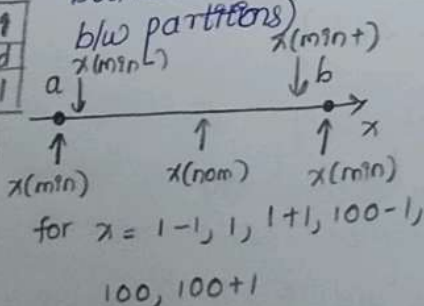 b/w partitions)
x(min-) x(min+)
a b
x
x(min) x(nom) x(min)
for x = 1-1, 1, 1+1, 100-1,
100, 100+1